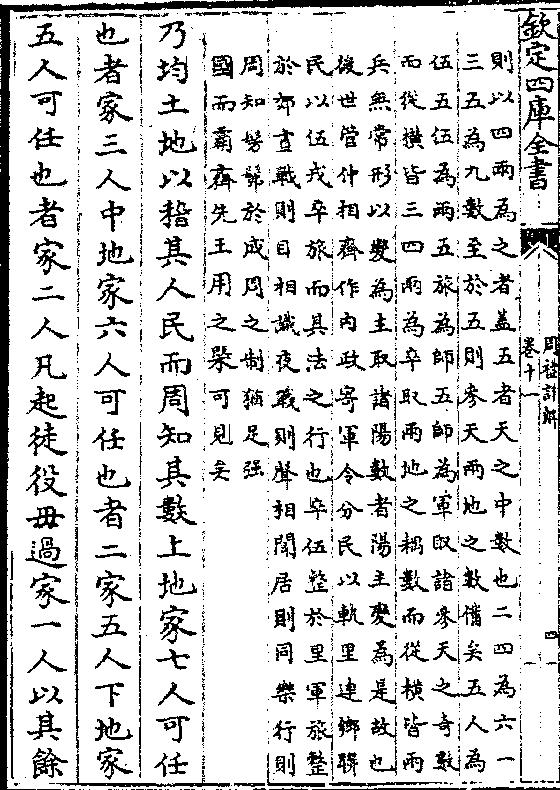 欽定四庫全書
周禮詳解
卷十一
四
則以四兩為之者葢五者天之中數也二四為六一
三五為九數至於五則參天兩地之數備矣五人為
伍五伍為兩五旅為師五師為軍取諸參天之奇數
而從橫皆三四兩為卒取兩地之耦數而從橫皆兩
兵無常形以變為主取諸陽數者陽主變為是故也
後世管仲相齊作内政寄軍令分民以軌里連鄉聯
民以伍戎卒旅而其法之行也卒伍整於里軍旅整
於郊晝戰則目相識夜戰則聲相聞居則同樂行則
周知髣髴於成周之制猶足强
國而霸齊先王用之槩可見矣
乃均土地以稽其人民而周知其數上地家七人可任
也者家三人中地家六人可任也者二家五人下地家
五人可任也者家二人凡起徒役毋過家一人以其餘